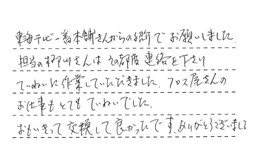 東海テレビ一善本舗さんからの紹介でお願いしました
担当の柳川さんはその都度連絡を下さり
ていねいに作業していただきました。クロス屋さんの
お仕事もとてもていねいでした。
おもいきって交換して良かったです。ありがとうございました